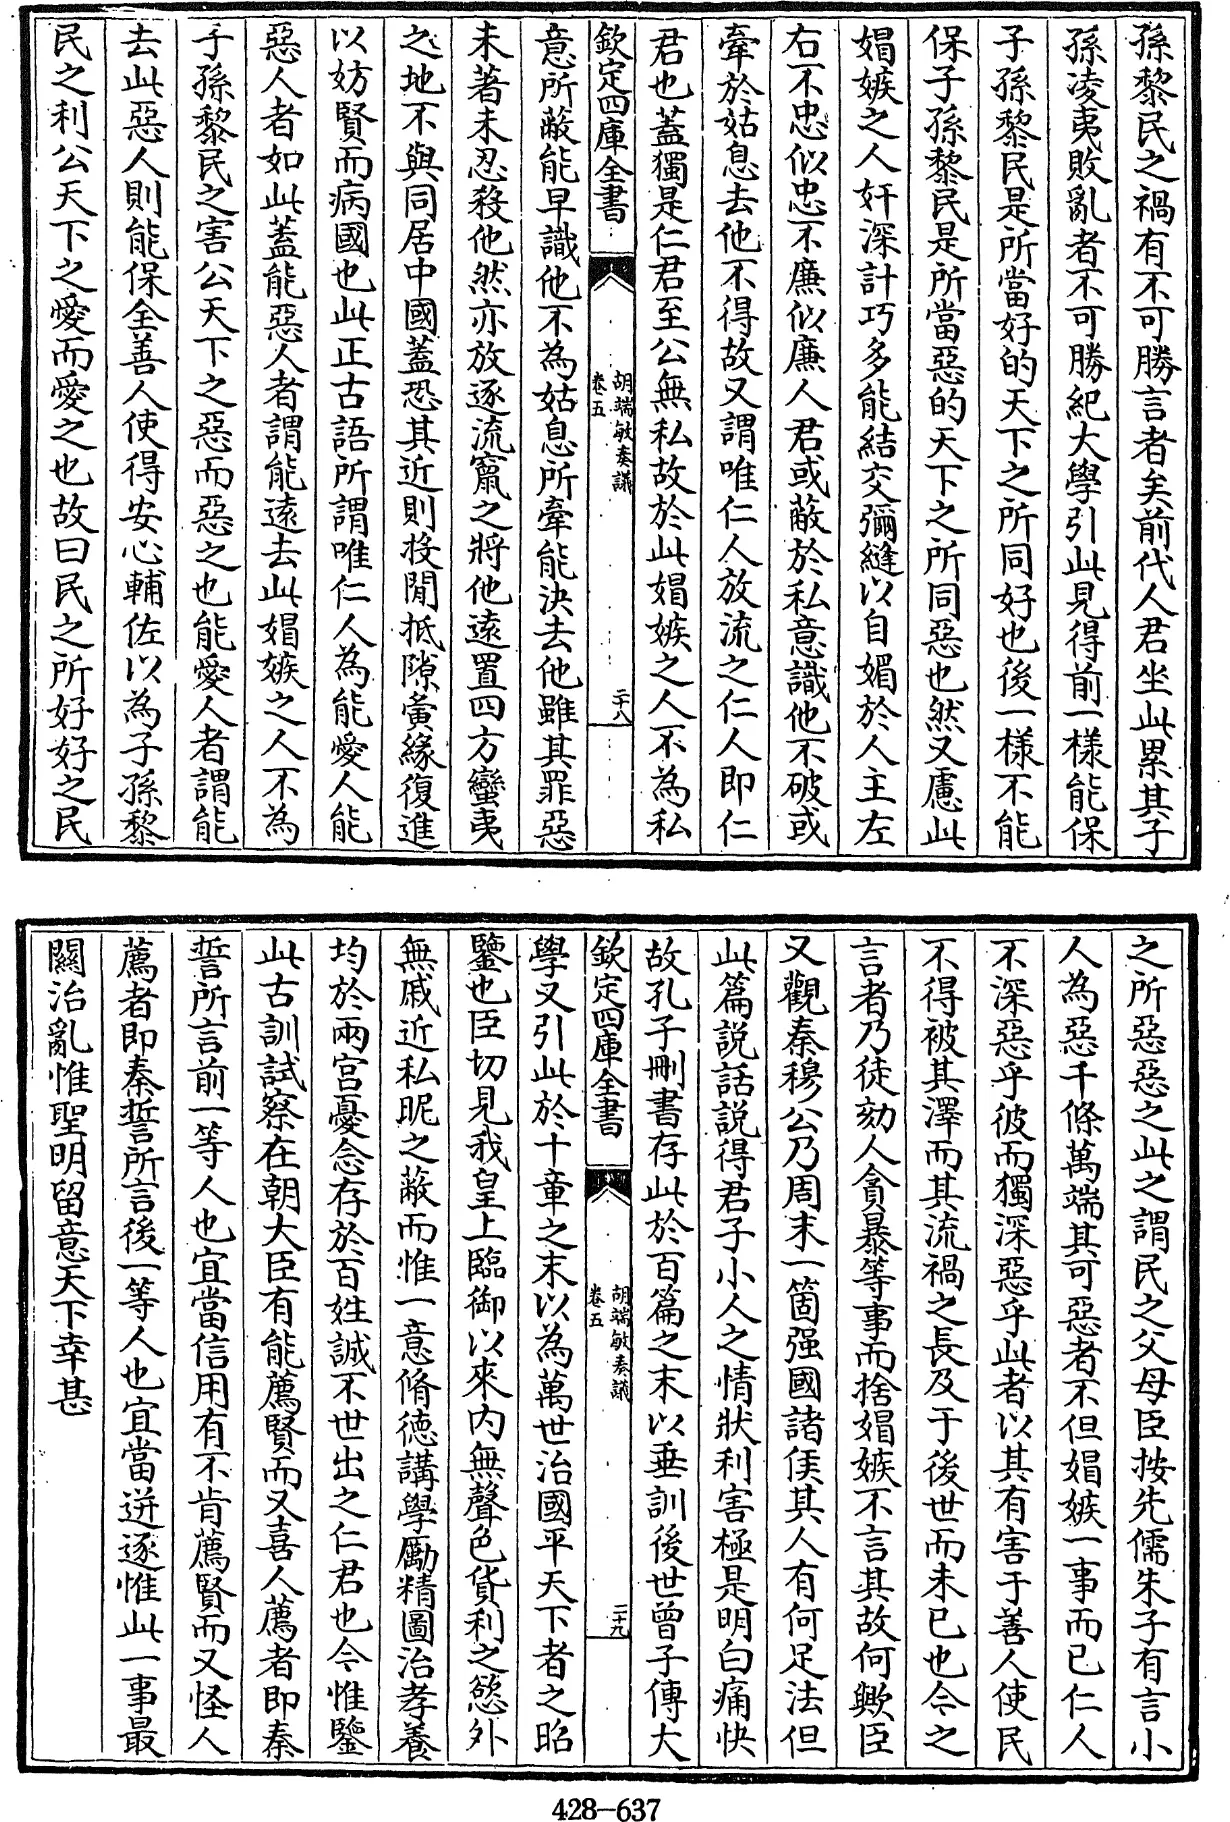 孫黎民之禍有不可勝言者矣前代人君坐此累其子
孫凌夷敗亂者不可勝紀大學引此見得前一樣能保
子孫黎民是所當好的天下之所同好也後一樣不能
保子孫黎民是所當惡的天下之所同惡也然又慮此
媢嫉之人奸深計巧多能結交彌縫以自媚於人主左
右不忠似忠不廉似廉人君或蔽於私意識他不破或
牽於姑息去他不得故又謂唯仁人放流之仁人即仁
君也蓋獨是仁君至公無私故於此媢嫉之人不為私
欽定四庫全書
胡端敏奏議
卷五
二十八
意所蔽能早識他不為姑息所牽能決去他雖其罪惡
未著未忍殺他然亦放逐流竄之將他遠置四方蠻夷
之地不與同居中國蓋恐其近則投閒抵隙夤緣復進
以妨賢而病國也此正古語所謂唯仁人為能愛人能
惡人者如此蓋能惡人者謂能遠去此媢嫉之人不為
子孫黎民之害公天下之惡而惡之也能愛人者謂能
去此惡人則能保全善人使得安心輔佐以為子孫黎
民之利公天下之愛而愛之也故曰民之所好好之民
之所惡惡之此之謂民之父母臣按先儒朱子有言小
人為惡千條萬端其可惡者不但媢嫉一事而已仁人
不深惡乎彼而獨深惡乎此者以其有害于善人使民
不得被其澤而其流禍之長及于後世而未已也今之
言者乃徒劾人貪暴等事而捨媢嫉不言其故何歟臣
又觀秦穆公乃周末一箇强國諸侯其人有何足法但
此篇説話説得君子小人之情狀利害極是明白痛快
故孔子刪書存此於百篇之末以垂訓後世曾子傳大
欽定四庫全書
胡端敏奏議
卷五
二十九
學又引此於十章之末以為萬世治國平天下者之昭
鑒也臣切見我皇上臨御以來内無聲色貨利之慾外
無戚近私昵之蔽而惟一意脩德講學勵精圖治孝養
均於兩宫憂念存於百姓誠不世出之仁君也今惟鑒
此古訓試察在朝大臣有能薦賢而又喜人薦者即秦
誓所言前一等人也宜當信用有不肯薦賢而又怪人
薦者即秦誓所言後一等人也宜當迸逐惟此一事最
關治亂惟聖明留意天下幸甚
428-637